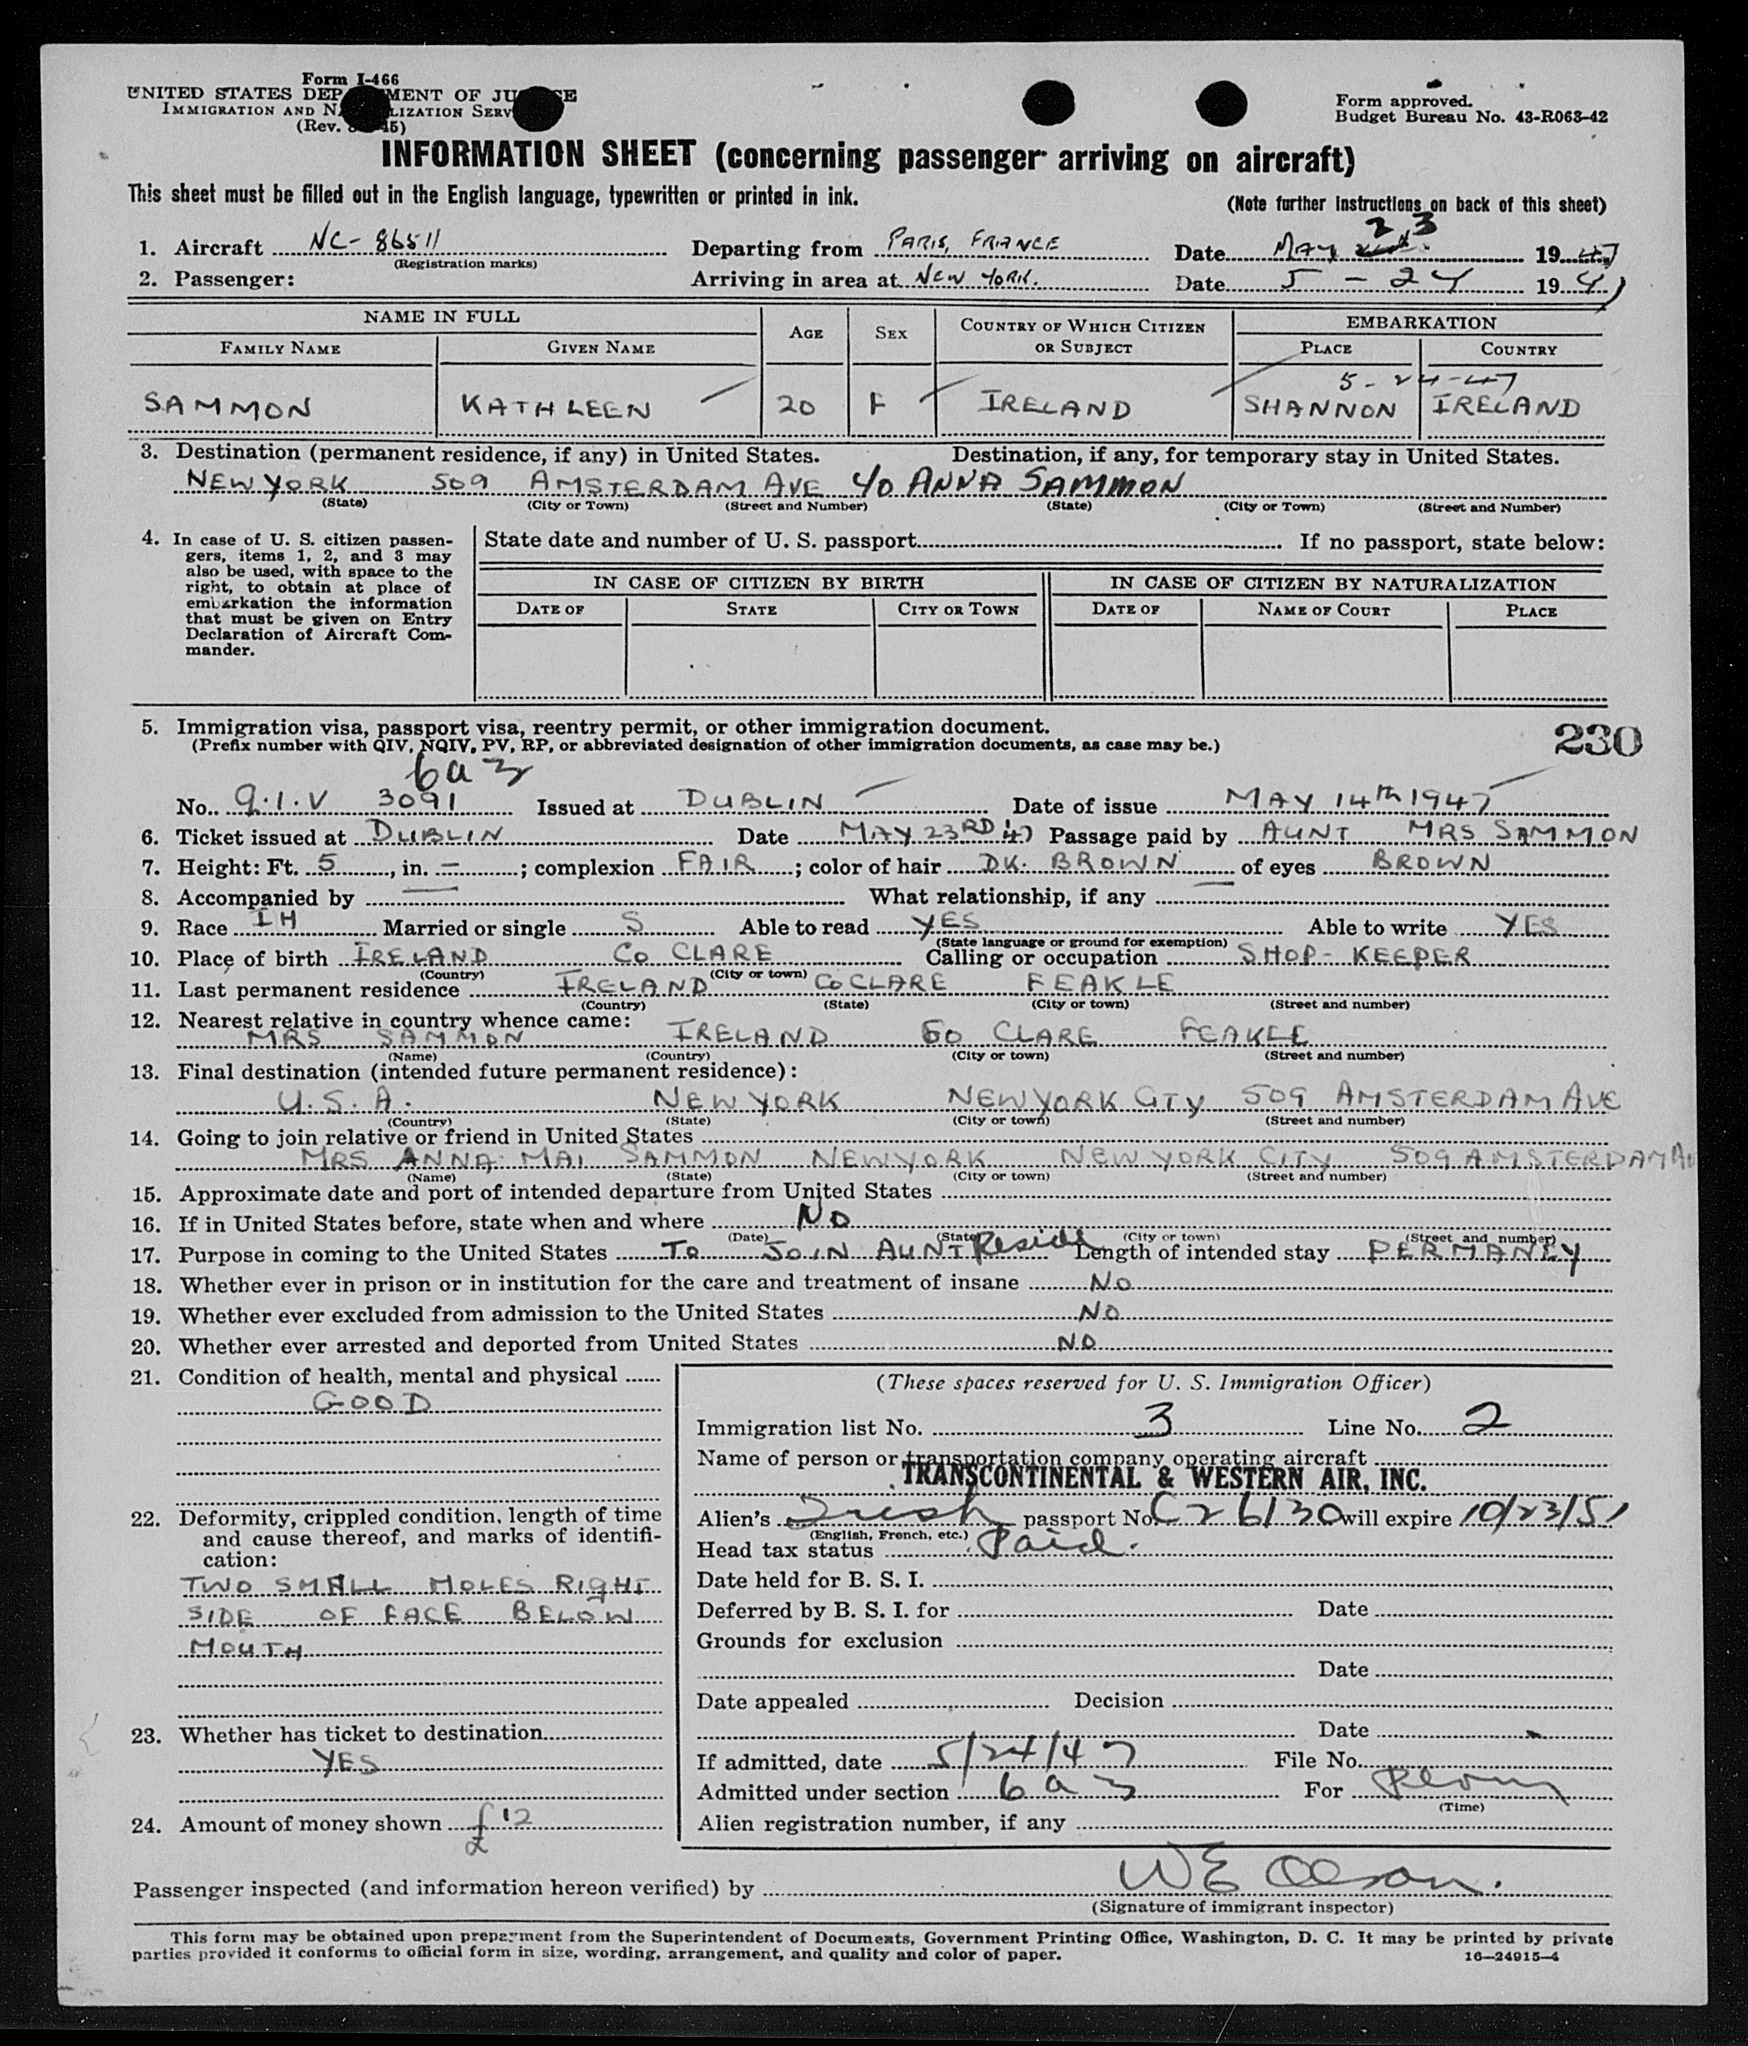 Form I-466
UNITED STATES DEP MENT OF JU E
IMMIGRATION AND N LIZATION SERV
(Rev. 45)
Form approved.
Budget Bureau No. 43-R063-42
INFORMATION SHEET (concerning passenger arriving on aircraft)
This sheet must be filled out in the English language, typewritten or printed in ink.
(Note further instructions on back of this sheet)
1. Aircraft NC-86511 Departing from PARIS, FRANCE Date MAY 23 1947
(Registration marks)
2. Passenger: Arriving in area at NEW YORK. Date 5-24 1947
NAME IN FULL AGE SEX COUNTRY OF WHICH CITIZEN OR SUBJECT EMBARKATION
FAMILY NAME GIVEN NAME PLACE COUNTRY
5-24-47
SAMMON KATHLEEN 20 F IRELAND SHANNON IRELAND
3. Destination (permanent residence, if any) in United States. Destination, if any, for temporary stay in United States.
NEW YORK 509 AMSTERDAM AVE c/o ANNA SAMMON
(State) (City or Town) (Street and Number) (State) (City or Town) (Street and Number)
4. In case of U. S. citizen passen-
gers, items 1, 2, and 3 may
also be used, with space to the
right, to obtain at place of
embarkation the information
that must be given on Entry
Declaration of Aircraft Com-
mander.
State date and number of U. S. passport If no passport, state below:
IN CASE OF CITIZEN BY BIRTH IN CASE OF CITIZEN BY NATURALIZATION
DATE OF STATE CITY OR TOWN DATE OF NAME OF COURT PLACE
5. Immigration visa, passport visa, reentry permit, or other immigration document.
(Prefix number with QIV, NQIV, PV, RP, or abbreviated designation of other immigration documents, as case may be.)
230
6a3
No. Q.I.V 3091 Issued at DUBLIN Date of issue MAY 14th 1947
6. Ticket issued at DUBLIN Date MAY 23RD '47 Passage paid by AUNT MRS SAMMON
7. Height: Ft. 5, in. –; complexion FAIR; color of hair DK. BROWN of eyes BROWN
8. Accompanied by — What relationship, if any —
9. Race IH Married or single S Able to read YES Able to write YES
(State language or ground for exemption)
10. Place of birth IRELAND CO CLARE Calling or occupation SHOP-KEEPER
(Country) (City or town)
11. Last permanent residence IRELAND CO CLARE FEAKLE
(Country) (State) (City or town) (Street and number)
12. Nearest relative in country whence came:
MRS SAMMON IRELAND CO CLARE FEAKLE
(Name) (Country) (City or town) (Street and number)
13. Final destination (intended future permanent residence):
U.S.A. NEW YORK NEW YORK CITY 509 AMSTERDAM AVE
(Country) (State) (City or town) (Street and number)
14. Going to join relative or friend in United States
MRS ANNA MAI SAMMON NEW YORK NEW YORK CITY 509 AMSTERDAM AV
(Name) (State) (City or town) (Street and number)
15. Approximate date and port of intended departure from United States
16. If in United States before, state when and where NO
(Date) (State) (City or town) (Street and number)
17. Purpose in coming to the United States TO JOIN AUNT Reside Length of intended stay PERMANEY
18. Whether ever in prison or in institution for the care and treatment of insane NO
19. Whether ever excluded from admission to the United States NO
20. Whether ever arrested and deported from United States NO
21. Condition of health, mental and physical
GOOD
22. Deformity, crippled condition, length of time
and cause thereof, and marks of identifi-
cation:
TWO SMALL MOLES RIGHT
SIDE OF FACE BELOW
MOUTH
23. Whether has ticket to destination
YES
24. Amount of money shown £12
(These spaces reserved for U. S. Immigration Officer)
Immigration list No. 3 Line No. 2
Name of person or transportation company operating aircraft
TRANSCONTINENTAL & WESTERN AIR, INC.
Alien's Irish passport No. C26130 will expire 10/23/51
(English, French, etc.)
Head tax status Paid.
Date held for B. S. I.
Deferred by B. S. I. for Date
Grounds for exclusion
Date
Date appealed Decision
Date
If admitted, date 5/24/47 File No.
Admitted under section 6a3 For Perm
(Time)
Alien registration number, if any
Passenger inspected (and information hereon verified) by W E Olson.
(Signature of immigrant inspector)
This form may be obtained upon prepayment from the Superintendent of Documents, Government Printing Office, Washington, D. C. It may be printed by private
parties provided it conforms to official form in size, wording, arrangement, and quality and color of paper. 16—24915-4